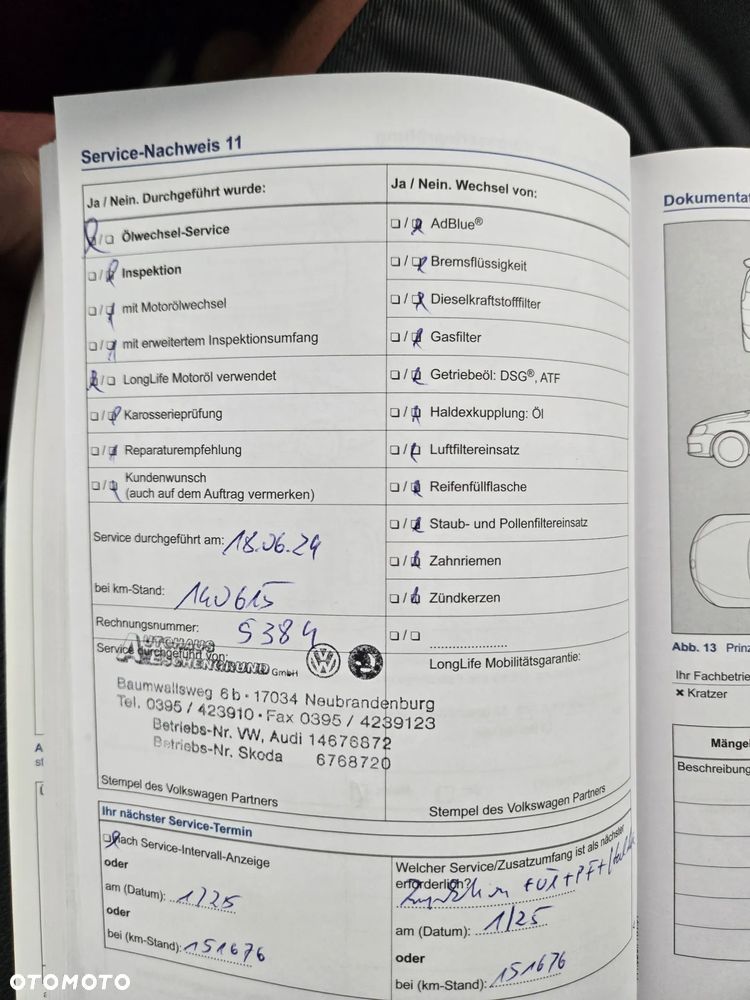 Service-Nachweis 11
Ja / Nein. Durchgeführt wurde:
❏/❏ Ölwechsel-Service
❏/❏ Inspektion
❏/❏ mit Motorölwechsel
❏/❏ mit erweitertem Inspektionsumfang
❏/❏ LongLife Motoröl verwendet
❏/❏ Karosserieprüfung
❏/❏ Reparaturempfehlung
❏/❏ Kundenwunsch
(auch auf dem Auftrag vermerken)
Service durchgeführt am: 18.06.24
bei km-Stand: 140615
Rechnungsnummer: 5384
Service durchgeführt von:
AUTOHAUS
ESCHENGRUND GmbH
Baumwallsweg 6b · 17034 Neubrandenburg
Tel. 0395 / 423910 · Fax 0395 / 4239123
Betriebs-Nr. VW, Audi 14676872
Betriebs-Nr. Skoda 6768720
Stempel des Volkswagen Partners
Ja / Nein. Wechsel von:
❏/❏ AdBlue®
❏/❏ Bremsflüssigkeit
❏/❏ Dieselkraftstofffilter
❏/❏ Gasfilter
❏/❏ Getriebeöl: DSG®, ATF
❏/❏ Haldexkupplung: Öl
❏/❏ Luftfiltereinsatz
❏/❏ Reifenfüllflasche
❏/❏ Staub- und Pollenfiltereinsatz
❏/❏ Zahnriemen
❏/❏ Zündkerzen
❏/❏ ....................
LongLife Mobilitätsgarantie:
Stempel des Volkswagen Partners
Ihr nächster Service-Termin
❏ nach Service-Intervall-Anzeige
oder
am (Datum): 1/25
oder
bei (km-Stand): 151676
Welcher Service/Zusatzumfang ist als nächster
erforderlich?
am (Datum): 1/25
oder
bei (km-Stand): 151676
Dokumentat
Abb. 13 Prinz
Ihr Fachbetrie
× Kratzer
Mängel
Beschreibung
OTOMOTO